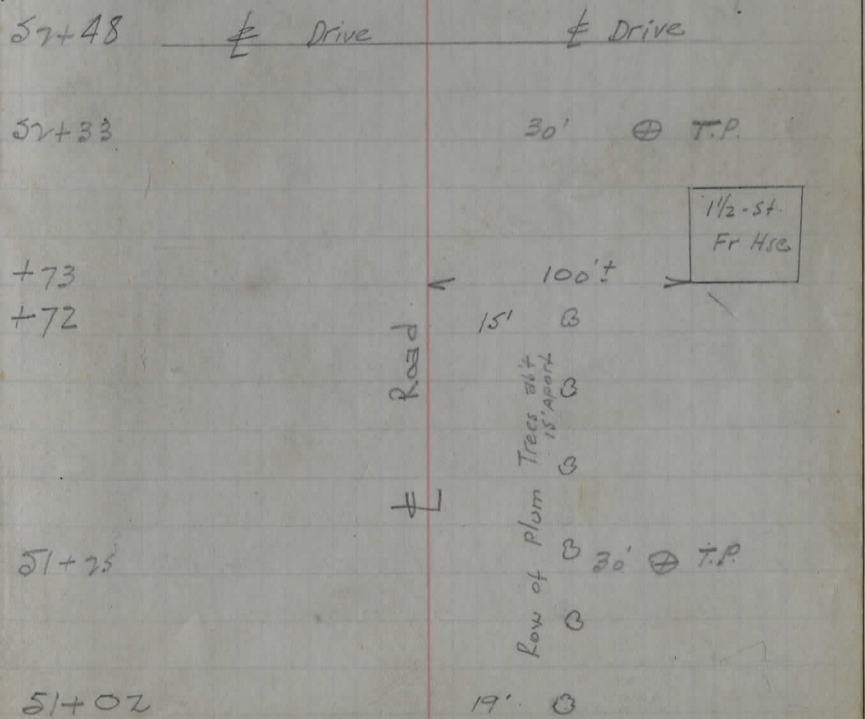 52+48 ℄ Drive ℄ Drive
52+33 30' ⊕ T.P.
1½-St.
Fr Hse
+73 100'±
+72 15'
℄ Road
Row of Plum Trees ab't
15' Apart
51+25 30' ⊕ T.P.
51+02 19'